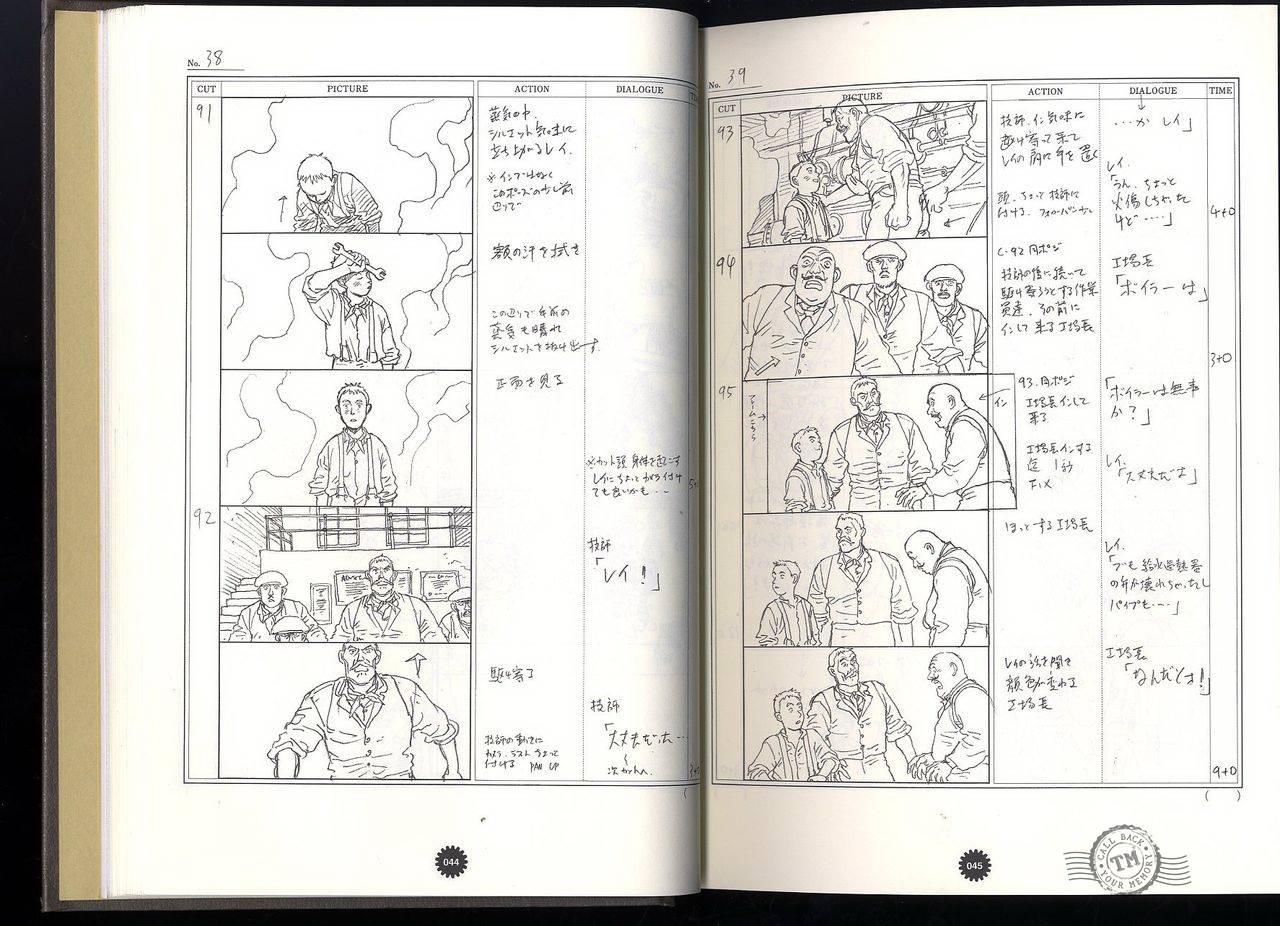 No. 38
CUT PICTURE ACTION DIALOGUE
91
蒸気の中、
シルエット気味に
立ち上がるレイ。
※インではなく
このポーズの少し前
辺りで
額の汗を拭き
この辺りで手前の
蒸気も晴れ
シルエットを抜け出す。
正面を見る
※カット頭 身体を起こす
レイにちょっとカメラ付け
ても良いかも…
92
技師
「レイ!」
駆け寄る
技師の動きに
カメラ、ラスト ちょっと
付ける PAN UP
技師
「大丈夫だった…
次カットへ
044
No. 39
CUT PICTURE ACTION DIALOGUE TIME
93
技師、イン気味に
駆け寄って来て
レイの肩に手を置く
頭、ちょっと技師に
付ける。フォローパン
…か レイ」
レイ、
「うん、ちょっと
火傷しちゃった
けど……」
4+0
94
C-92 同ポジ
技師の後に続いて
駆け寄ろうとする作業
員達、その前に
インして来る工場長
工場長
「ボイラーは」
3+0
95
フレームこちら
イン
93、同ポジ
工場長インして
来る
工場長インする
迄 1秒
FIX
「ボイラーは無事
か?」
レイ、
「大丈夫だよ」
ほっとする工場長
レイ、
「でも 給水過熱器
の弁が壊れちゃったし
パイプも…」
レイの話を聞き
顔色が変わる
工場長
工場長
「なんだとォ!」
9+0
( )
045
CALL BACK
TM
YOUR MEMORY